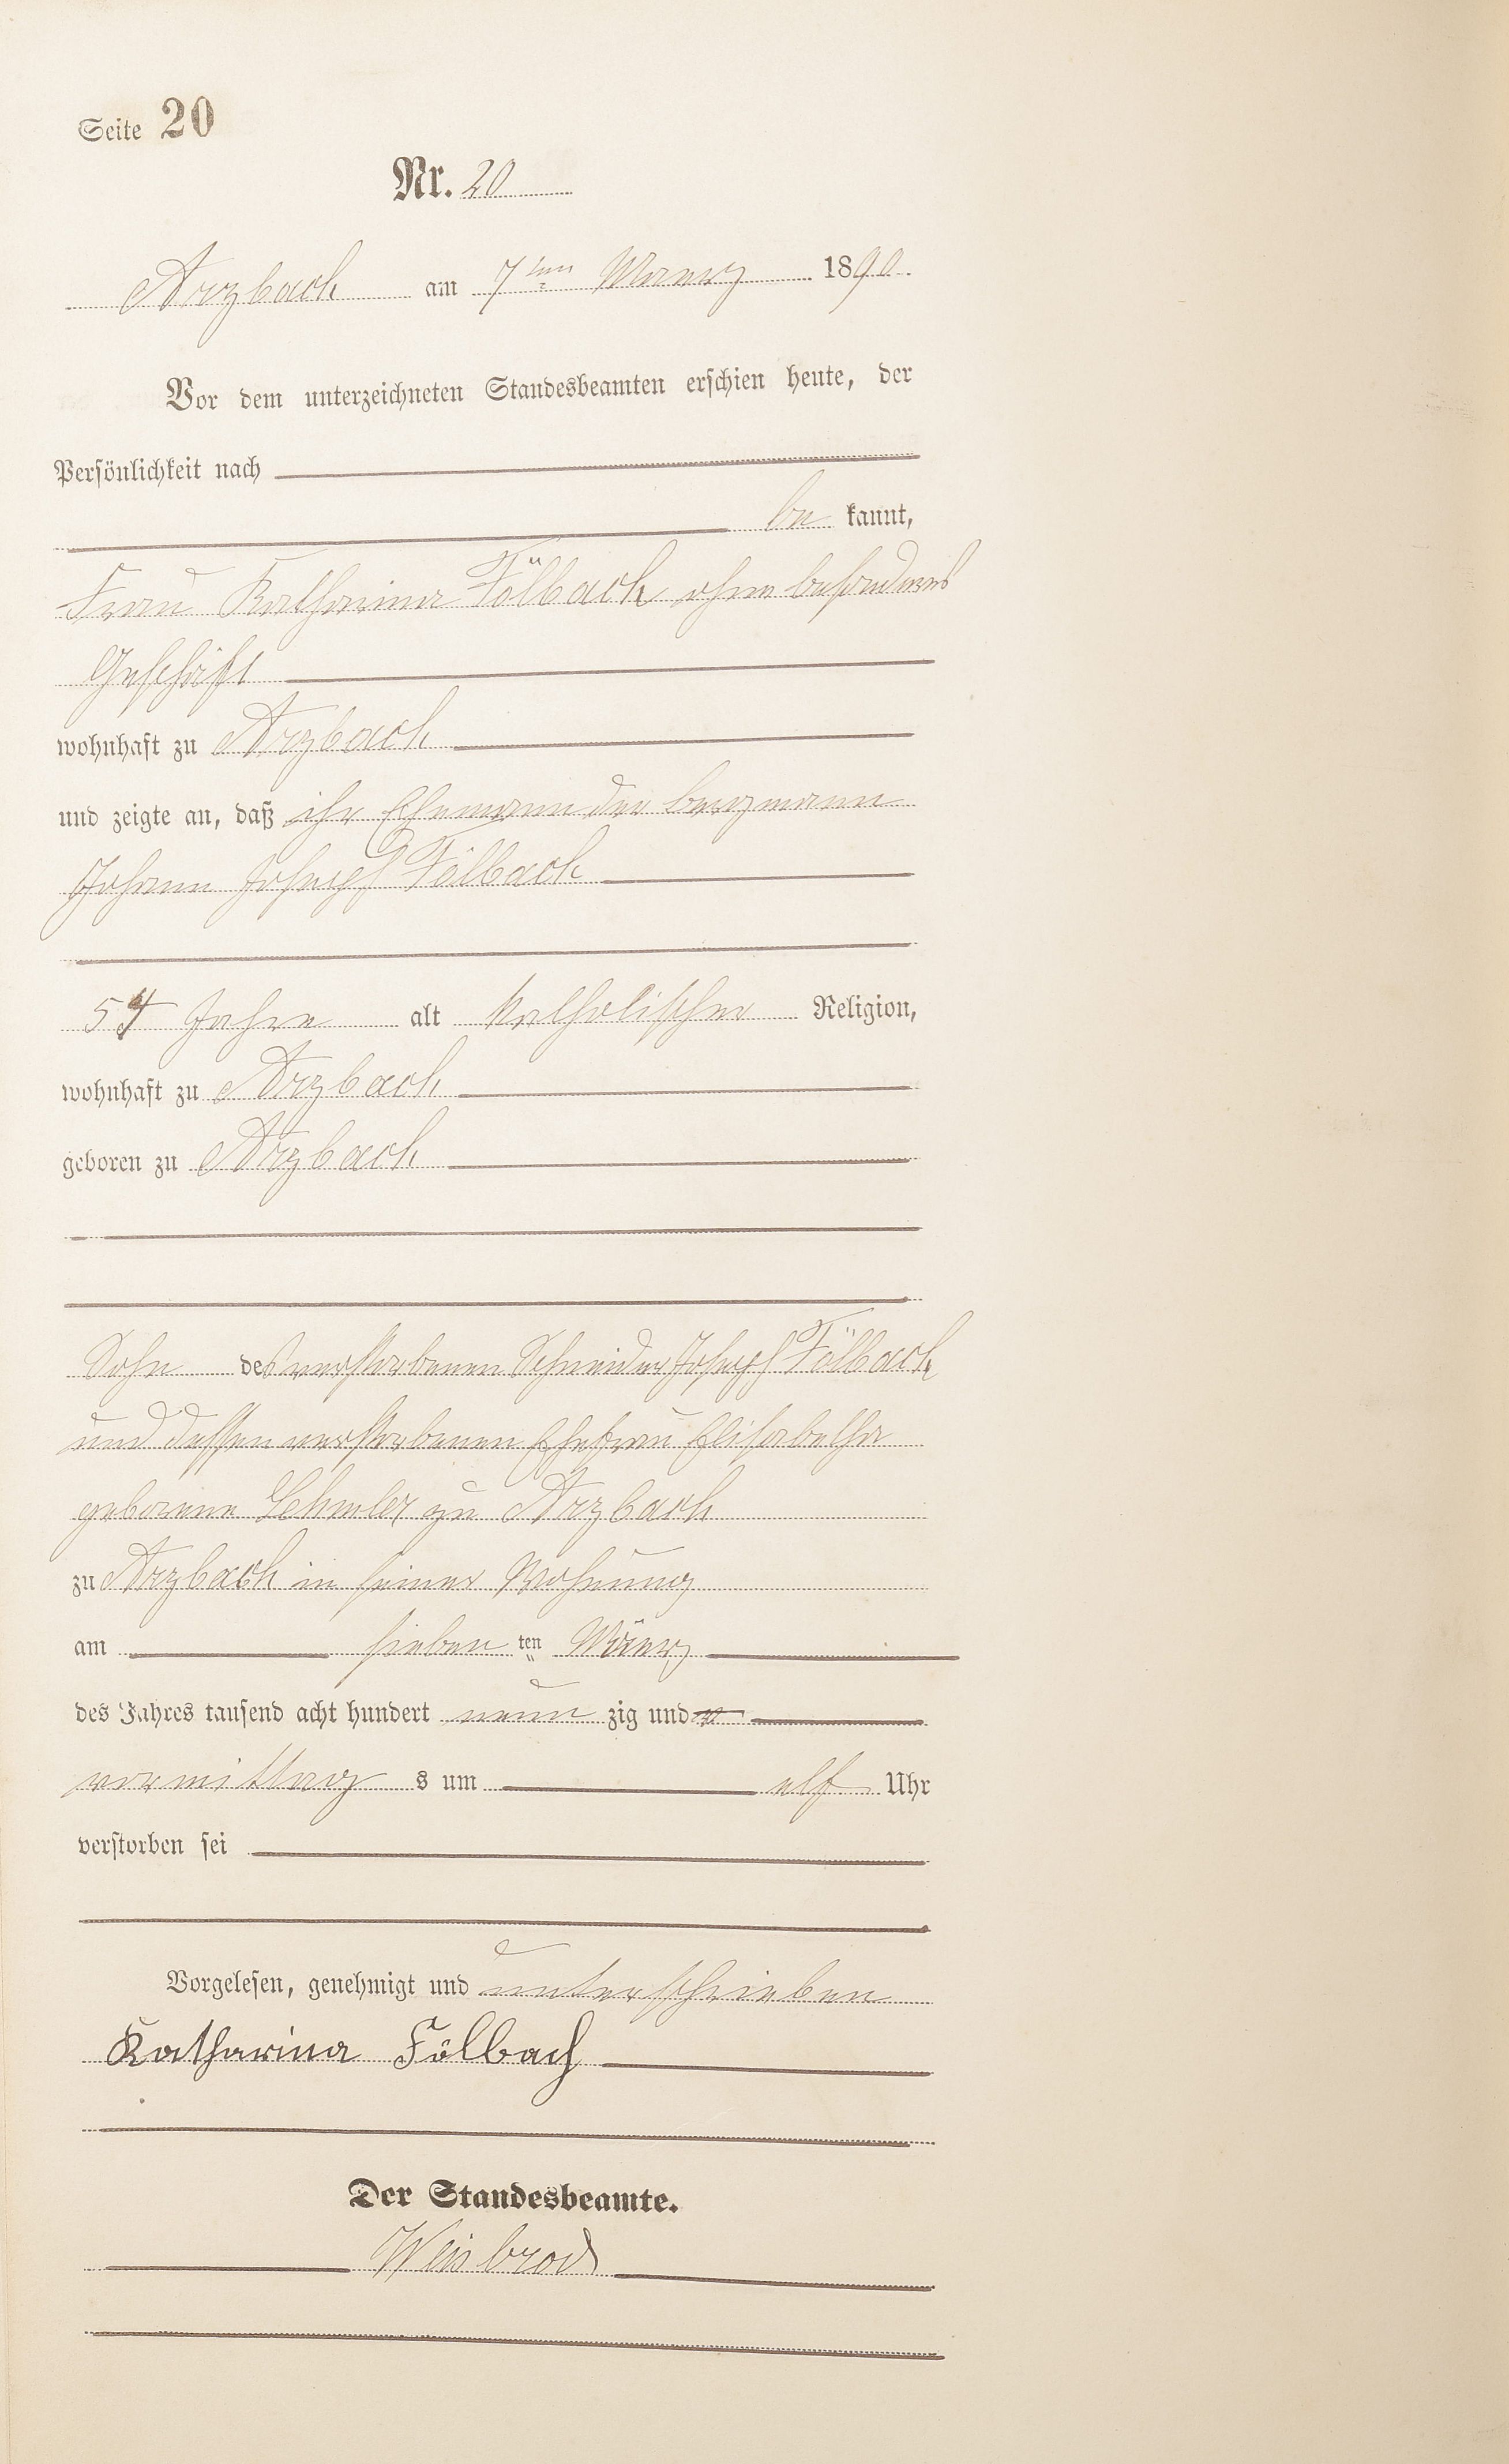 Seite 20
Nr. 20
Arzbach am 7ten Maerz 1890.
Vor dem unterzeichneten Standesbeamten erschien heute, der
Persönlichkeit nach
be kannt,
Frau Katharina Fölbach ohne besonderes
Geschäft
wohnhaft zu Arzbach
und zeigte an, daß ihr Ehemann der bergmann
Johann Joseph Fölbach
54 Jahre alt katholischer Religion,
wohnhaft zu Arzbach
geboren zu Arzbach
Sohn des verstorbenen Schneider Joseph Fölbach
und dessen verstorbenen Ehefrau Elisabetha
geborene zu Arzbach
zu Arzbach in seiner Wohnung
am sieben ten Märrz
des Jahres tausend acht hundert neun zig und
vormittag s um elf Uhr
verstorben sei
Vorgelesen, genehmigt und unterschrieben
Katharina Fölbach
Der Standesbeamte.
Weisbrod